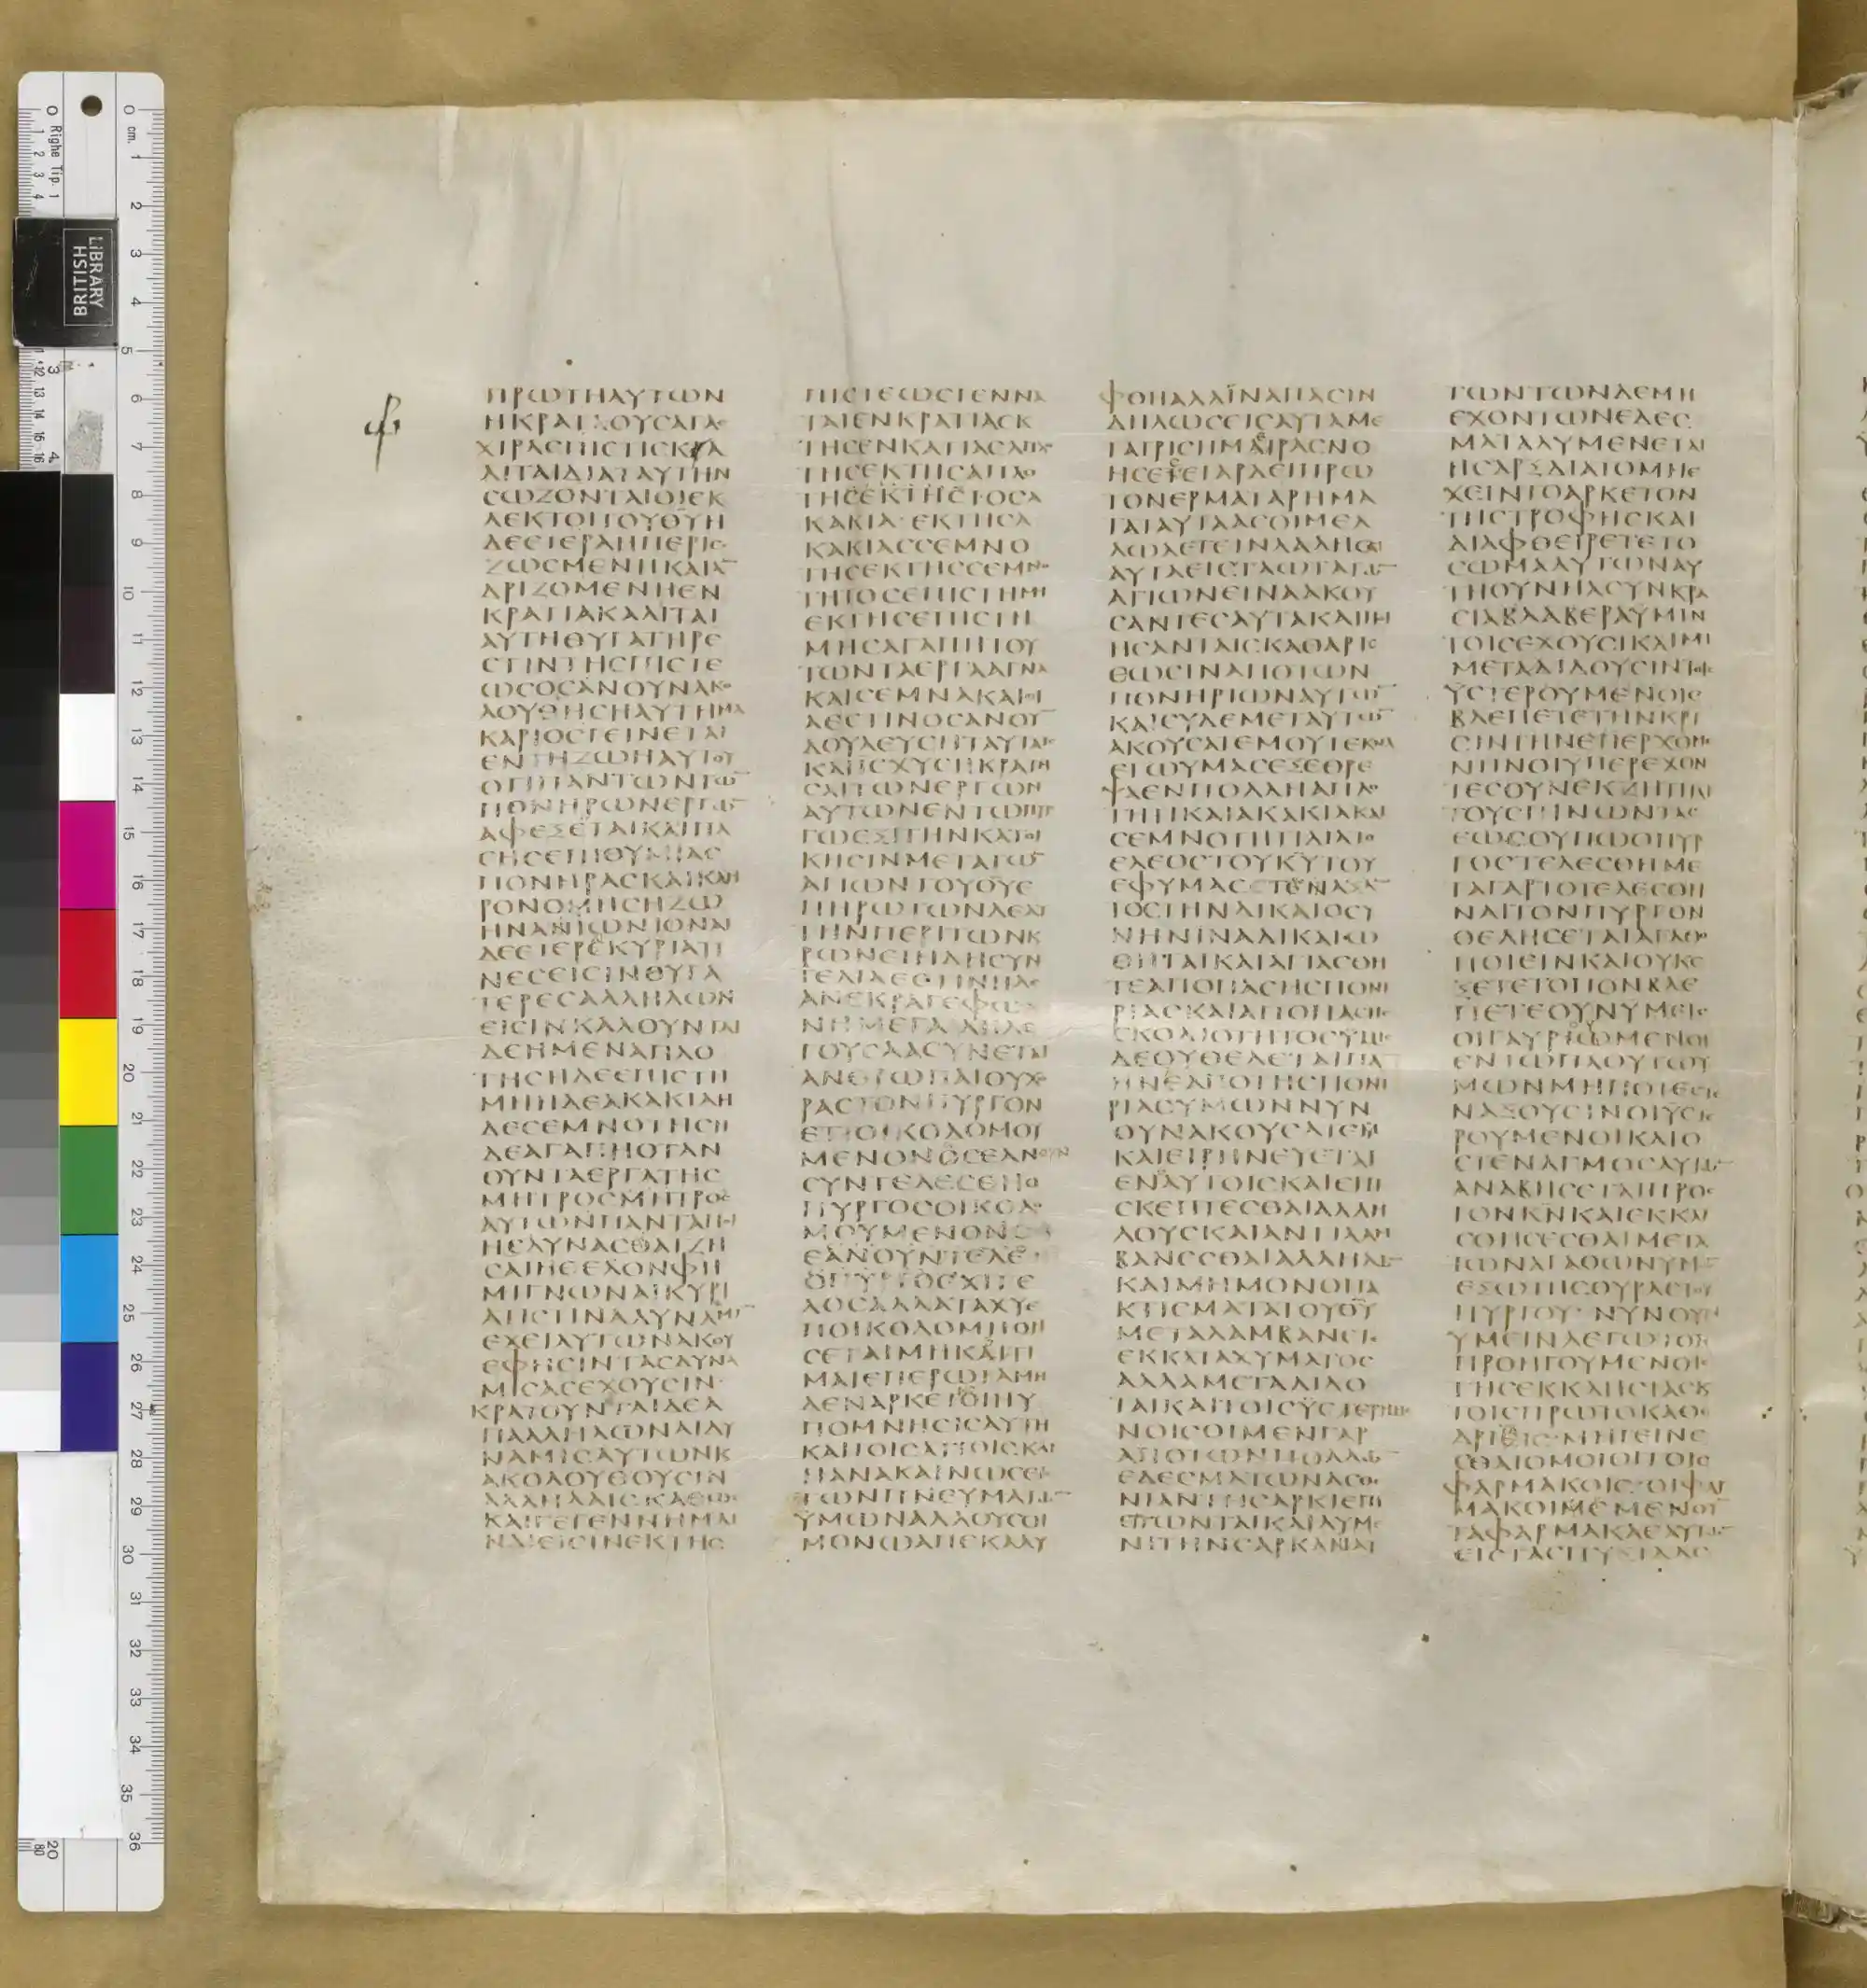 ΠΡΩΤΗΑΥΤΩΝ
ΗΚΡΑΤΟΥϹΑΤΑϹ
ΧΙΡΑϹΠΙϹΤΙϹΚΑ
ΛΙΤΑΙΔΙΑΤΑΥΤΗΝ
ϹΩΖΟΝΤΑΙΟΙΕΚ
ΛΕΚΤΟΙΤΟΥΘΥΗ
ΔΕΕΤΕΡΑΗΠΕΡΙΕ
ΖΩϹΜΕΝΗΚΑΙΑΝ
ΔΡΙΖΟΜΕΝΗΕΝ
ΚΡΑΤΙΑΚΑΛΙΤΑΙ
ΑΥΤΗΘΥΓΑΤΗΡΕ
ϹΤΙΝΤΗϹΠΙϹΤΕ
ΩϹΟϹΑΝΟΥΝΑΚΟ
ΛΟΥΘΗϹΗΑΥΤΗΜΑ
ΚΑΡΙΟϹΓΕΙΝΕΤΑΙ
ΕΝΤΗΖΩΗΑΥΤΟΥ
ΟΤΙΠΑΝΤΩΝΤΩΝ
ΠΟΝΗΡΩΝΕΡΓΩΝ
ΑΦΕΞΕΤΑΙΚΑΙΠΑ
ϹΗϹΕΠΙΘΥΜΙΑϹ
ΠΟΝΗΡΑϹΚΑΙΚΛΗ
ΡΟΝΟΜΗϹΗΖΩ
ΗΝΑΙΩΝΙΟΝΑΙ
ΔΕΕΤΕΡΕΚΥΡΙΑΤΙ
ΝΕϹΕΙϹΙΝΘΥΓΑ
ΤΕΡΕϹΑΛΛΗΛΩΝ
ΕΙϹΙΝΚΑΛΟΥΝΤΑΙ
ΔΕΗΜΕΝΑΠΛΟ
ΤΗϹΗΔΕΕΠΙϹΤΗ
ΜΗΗΔΕΑΚΑΚΙΑΗ
ΔΕϹΕΜΝΟΤΗϹΗ
ΔΕΑΓΑΠΗΟΤΑΝ
ΟΥΝΤΑΕΡΓΑΤΗϹ
ΜΗΤΡΟϹΜΗΤΡΟϹ
ΑΥΤΩΝΠΑΝΤΑΠΟΙ
ΗϹΔΥΝΑϹΘΑΙΖΗ
ϹΑΙΗΘΕΛΟΝΦΗ
ΜΙΓΝΩΝΑΙΚΥΡΙ
ΑΠΙϹΤΙΝΑΔΥΝΑΜΙΝ
ΕΧΕΙΑΥΤΩΝΑΚΟΥ
ΕΦΗϹΙΝΤΑϹΔΥΝΑ
ΜΙϹΑϹΕΧΟΥϹΙΝ
ΚΡΑΤΟΥΝΤΑΙΔΕΑ
ΠΑΛΛΗΛΩΝΑΙΔΥ
ΝΑΜΙϹΑΥΤΩΝΚ
ΑΚΟΛΟΥΘΟΥϹΙΝ
ΑΛΛΗΛΑΙϹΚΑΘΩϹ
ΚΑΙΓΕΓΕΝΝΗΜΑΙ
ΝΑΙΕΙϹΙΝΕΚΤΗϹ
ΠΙϹΤΕΩϹΓΕΝΝΑ
ΤΑΙΕΝΚΡΑΤΙΑΕΚ
ΤΗϹΕΝΚΑΤΙΑϹΑΠΛΟ
ΤΗϹΕΚΤΗϹΑΠΛΟ
ΤΗϹΕΚΤΗϹΤΟϹΑ
ΚΑΚΙΑ·ΕΚΤΗϹΑ
ΚΑΚΙΑϹϹΕΜΝΟ
ΤΗϹΕΚΤΗϹϹΕΜΝΟ
ΤΗΤΟϹΕΠΙϹΤΗΜΗ
ΕΚΤΗϹΕΠΙϹΤΗ
ΜΗϹΑΓΑΠΗΤΟΥ
ΤΩΝΤΑΕΡΓΑΑΓΝΑ
ΚΑΙϹΕΜΝΑΚΑΙΘΙ
ΑΕϹΤΙΝΟϹΑΝΟΥΝ
ΔΟΥΛΕΥϹΗΤΑΥΤΑΙϹ
ΚΑΙΙϹΧΥϹΗΚΡΑΤΗ
ϹΑΙΤΩΝΕΡΓΩΝ
ΑΥΤΩΝΕΝΤΩΠΥΡ
ΓΩΕΞΙΤΗΝΚΑΤΟΙ
ΚΗϹΙΝΜΕΤΑΤΩΝ
ΑΓΙΩΝΤΟΥΘΥΕ
ΠΗΡΩΤΩΝΔΕΑΥ
ΤΗΝΠΕΡΙΤΩΝΚ
ΡΩΝΕΙΗΔΗϹΥΝ
ΤΕΛΙΑΕϹΤΙΝΗΔΕ
ΑΝΕΚΡΑΓΕΦΩ
ΝΗΜΕΓΑΛΗΛΕ
ΓΟΥϹΑΑϹΥΝΕΤΑΙ
ΑΝΘΡΩΠΑΙΟΥΧΟ
ΡΑϹΤΟΝΠΥΡΓΟΝ
ΕΤΙΟΙΚΟΔΟΜΟΥ
ΜΕΝΟΝΟϹΕΑΝΟΥΝ
ϹΥΝΤΕΛΕϹΘΗΟ
ΠΥΡΓΟϹΟΙΚΟΔΟ
ΜΟΥΜΕΝΟΝ
ΕΑΝΟΥΝΤΕΛΕϹ
ΟΠΥΡΓΟϹΕΧΙΤΕ
ΛΟϹΑΛΛΑΤΑΧΥΕ
ΠΟΙΚΟΔΟΜΗΘΗ
ϹΕΤΑΙΜΗΚΕΤΙ
ΜΑΙΕΠΕΡΩΤΑΜΗ
ΔΕΝΑΡΚΕΤΟΙΗΥ
ΠΟΜΝΗϹΙϹΑΥΤΗ
ΚΑΙΤΟΙϹΑΓΙΟΙϹΚΑΙ
ΗΑΝΑΚΑΙΝΩϹΕΙ
ΤΩΝΠΝΕΥΜΑΤΩΝ
ΥΜΩΝΑΛΛΟΥϹΟΙ
ΜΟΝΩΑΠΕΚΑΛΥ
ΦΘΗΑΛΛΪΝΑΠΑϹΙΝ
ΔΗΛΩϹΕΙϹΑΥΤΑΜΕ
ΤΑΤΡΙϹΗΜΑΙΡΑϹΝΟ
ΗϹΕΓΕΙΑΡΔΕΙΠΡΩ
ΤΟΝΕΡΜΑΤΑΡΗΜΑ
ΤΑΤΑΥΤΑΑϹΟΙΜΕΛ
ΛΩΛΕΓΕΙΝΛΑΛΗϹΑΙ
ΑΥΤΑΕΙϹΤΑΩΤΑΤΩΝ
ΑΓΙΩΝΕΙΝΑΑΚΟΥ
ϹΑΝΤΕϹΑΥΤΑΚΑΙΠΟΙ
ΗϹΑΝΤΑΙϹΚΑΘΑΡΙϹ
ΘΩϹΙΝΑΠΟΤΩΝ
ΠΟΝΗΡΙΩΝΑΥΤΩΝ
ΚΑΙϹΥΔΕΜΕΤΑΥΤΩΝ
ΑΚΟΥϹΑΤΕΜΟΥΤΕΚΝΑ
ΕΓΩΥΜΑϹΕΞΕΘΡΕ
ΨΑΕΝΠΟΛΛΗΑΠΛΟ
ΤΗΤΙΚΑΙΑΚΑΚΙΑΚΑΙ
ϹΕΜΝΟΤΗΤΙΔΙΑΤΟ
ΕΛΕΟϹΤΟΥΚΥΤΟΥ
ΕΦΥΜΑϹϹΤΑΞΑΝ
ΤΟϹΤΗΝΔΙΚΑΙΟϹΥ
ΝΗΝΙΝΑΔΙΚΑΙΩ
ΘΗΤΑΙΚΑΙΑΓΙΑϹΘΗ
ΤΕΑΠΟΠΑϹΗϹΠΟΝΗ
ΡΙΑϹΚΑΙΑΠΟΠΑϹΗϹ
ϹΚΟΛΙΟΤΗΤΟϹΥΜΙϹ
ΔΕΟΥΘΕΛΕΤΑΙΠΑ
ΗΝΕΑΠΟΤΗϹΠΟΝΗ
ΡΙΑϹΥΜΩΝΝΥΝ
ΟΥΝΑΚΟΥϹΑΤΕΜΟΥ
ΚΑΙΕΙΡΗΝΕΥΕΤΑΙ
ΕΝΑΥΤΟΙϹΚΑΙΕΠΙ
ϹΚΕΠΤΕϹΘΑΙΑΛΛΗ
ΛΟΥϹΚΑΙΑΝΤΙΛΑΜ
ΒΑΝΕϹΘΑΙΑΛΛΗΛΩΝ
ΚΑΙΜΗΜΟΝΟΙΤΑ
ΚΤΙϹΜΑΤΑΤΟΥΘΥ
ΜΕΤΑΛΑΜΒΑΝΕΤΕ
ΕΚΚΑΤΑΧΥΜΑΤΟϹ
ΑΛΛΑΜΕΤΑΔΙΔΟ
ΤΑΙΚΑΙΤΟΙϹΥϹΤΕΡΟΥΜΕ
ΝΟΙϹΟΙΜΕΝΓΑΡ
ΑΠΟΤΩΝΠΟΛΛΩΝ
ΕΔΕϹΜΑΤΩΝΑϹΘΕ
ΝΙΑΝΤΗϹΑΡΚΙΕΠΙ
ϹΠΩΝΤΑΙΚΑΙΛΥΜΕ
ΝΙΤΗΝϹΑΡΚΑΝΑΙ
ΤΩΝΤΩΝΔΕΜΗ
ΕΧΟΝΤΩΝΕΔΕϹ
ΜΑΤΑΛΥΜΕΝΕΤΑΙ
ΗϹΑΡΞΔΙΑΤΟΜΗΕ
ΧΕΙΝΤΟΑΡΚΕΤΟΝ
ΤΗϹΤΡΟΦΗϹΚΑΙ
ΔΙΑΦΘΕΙΡΕΤΕΤΟ
ϹΩΜΑΑΥΤΩΝΑΥ
ΤΗΟΥΝΗΑϹΥΝΚΡΑ
ϹΙΑΒΛΑΒΕΡΑΥΜΙΝ
ΤΟΙϹΕΧΟΥϹΙΚΑΙΜΗ
ΜΕΤΑΔΙΔΟΥϹΙΝΤΟΙϹ
ΫϹΤΕΡΟΥΜΕΝΟΙϹ
ΒΛΕΠΕΤΕΤΗΝΚΡΙ
ϹΙΝΤΗΝΕΠΕΡΧΟΜΕ
ΝΗΝΟΙΥΠΕΡΕΧΟΝ
ΤΕϹΟΥΝΕΚΖΗΤΙΤΑΙ
ΤΟΥϹΠΙΝΩΝΤΑϹ
ΕΩϹΟΥΠΩΟΠΥΡ
ΓΟϹΤΕΛΕϹΘΗΜΕ
ΤΑΓΑΡΤΟΤΕΛΕϹΘΗ
ΝΑΙΤΟΝΠΥΡΓΟΝ
ΘΕΛΗϹΕΤΑΙΑΓΑΘΟ
ΠΟΙΕΙΝΚΑΙΟΥΚΕ
ΞΕΤΕΤΟΠΟΝΒΛΕ
ΠΕΤΕΟΥΝΥΜΕΙϹ
ΟΙΓΑΥΡΙΩΜΕΝΟΙ
ΕΝΤΩΠΛΟΥΤΩΥ
ΜΩΝΜΗΠΟΤΕϹΤΕ
ΝΑΞΟΥϹΙΝΟΙΥϹΤΕ
ΡΟΥΜΕΝΟΙΚΑΙΟ
ϹΤΕΝΑΓΜΟϹΑΥΤΩΝ
ΑΝΑΒΗϹΕΤΑΙΠΡΟϹ
ΤΟΝΚΝΚΑΙΕΚΚΛΙ
ϹΘΗϹΕϹΘΑΙΜΕΤΑ
ΤΩΝΑΓΑΘΩΝΥΜΩΝ
ΕΞΩΤΗϹΘΥΡΑϹΤΟΥ
ΠΥΡΓΟΥ·ΝΥΝΟΥΝ
ΥΜΕΙΝΛΕΓΩΤΟΙϹ
ΠΡΟΗΓΟΥΜΕΝΟΙϹ
ΤΗϹΕΚΚΛΗϹΙΑϹΚ
ΤΟΙϹΠΡΩΤΟΚΑΘΕ
ΔΡΙΤΕϹ·ΜΗΓΕΙΝΕ
ϹΘΑΙΟΜΟΙΟΙΤΟΙϹ
ΦΑΡΜΑΚΟΙϹ·ΟΙΦΑΡ
ΜΑΚΟΙΜΕΜΕΝΟΥΝ
ΤΑΦΑΡΜΑΚΑΕΑΥΤΩΝ
ΕΙϹΤΑϹΠΥΞΙΔΑϹ